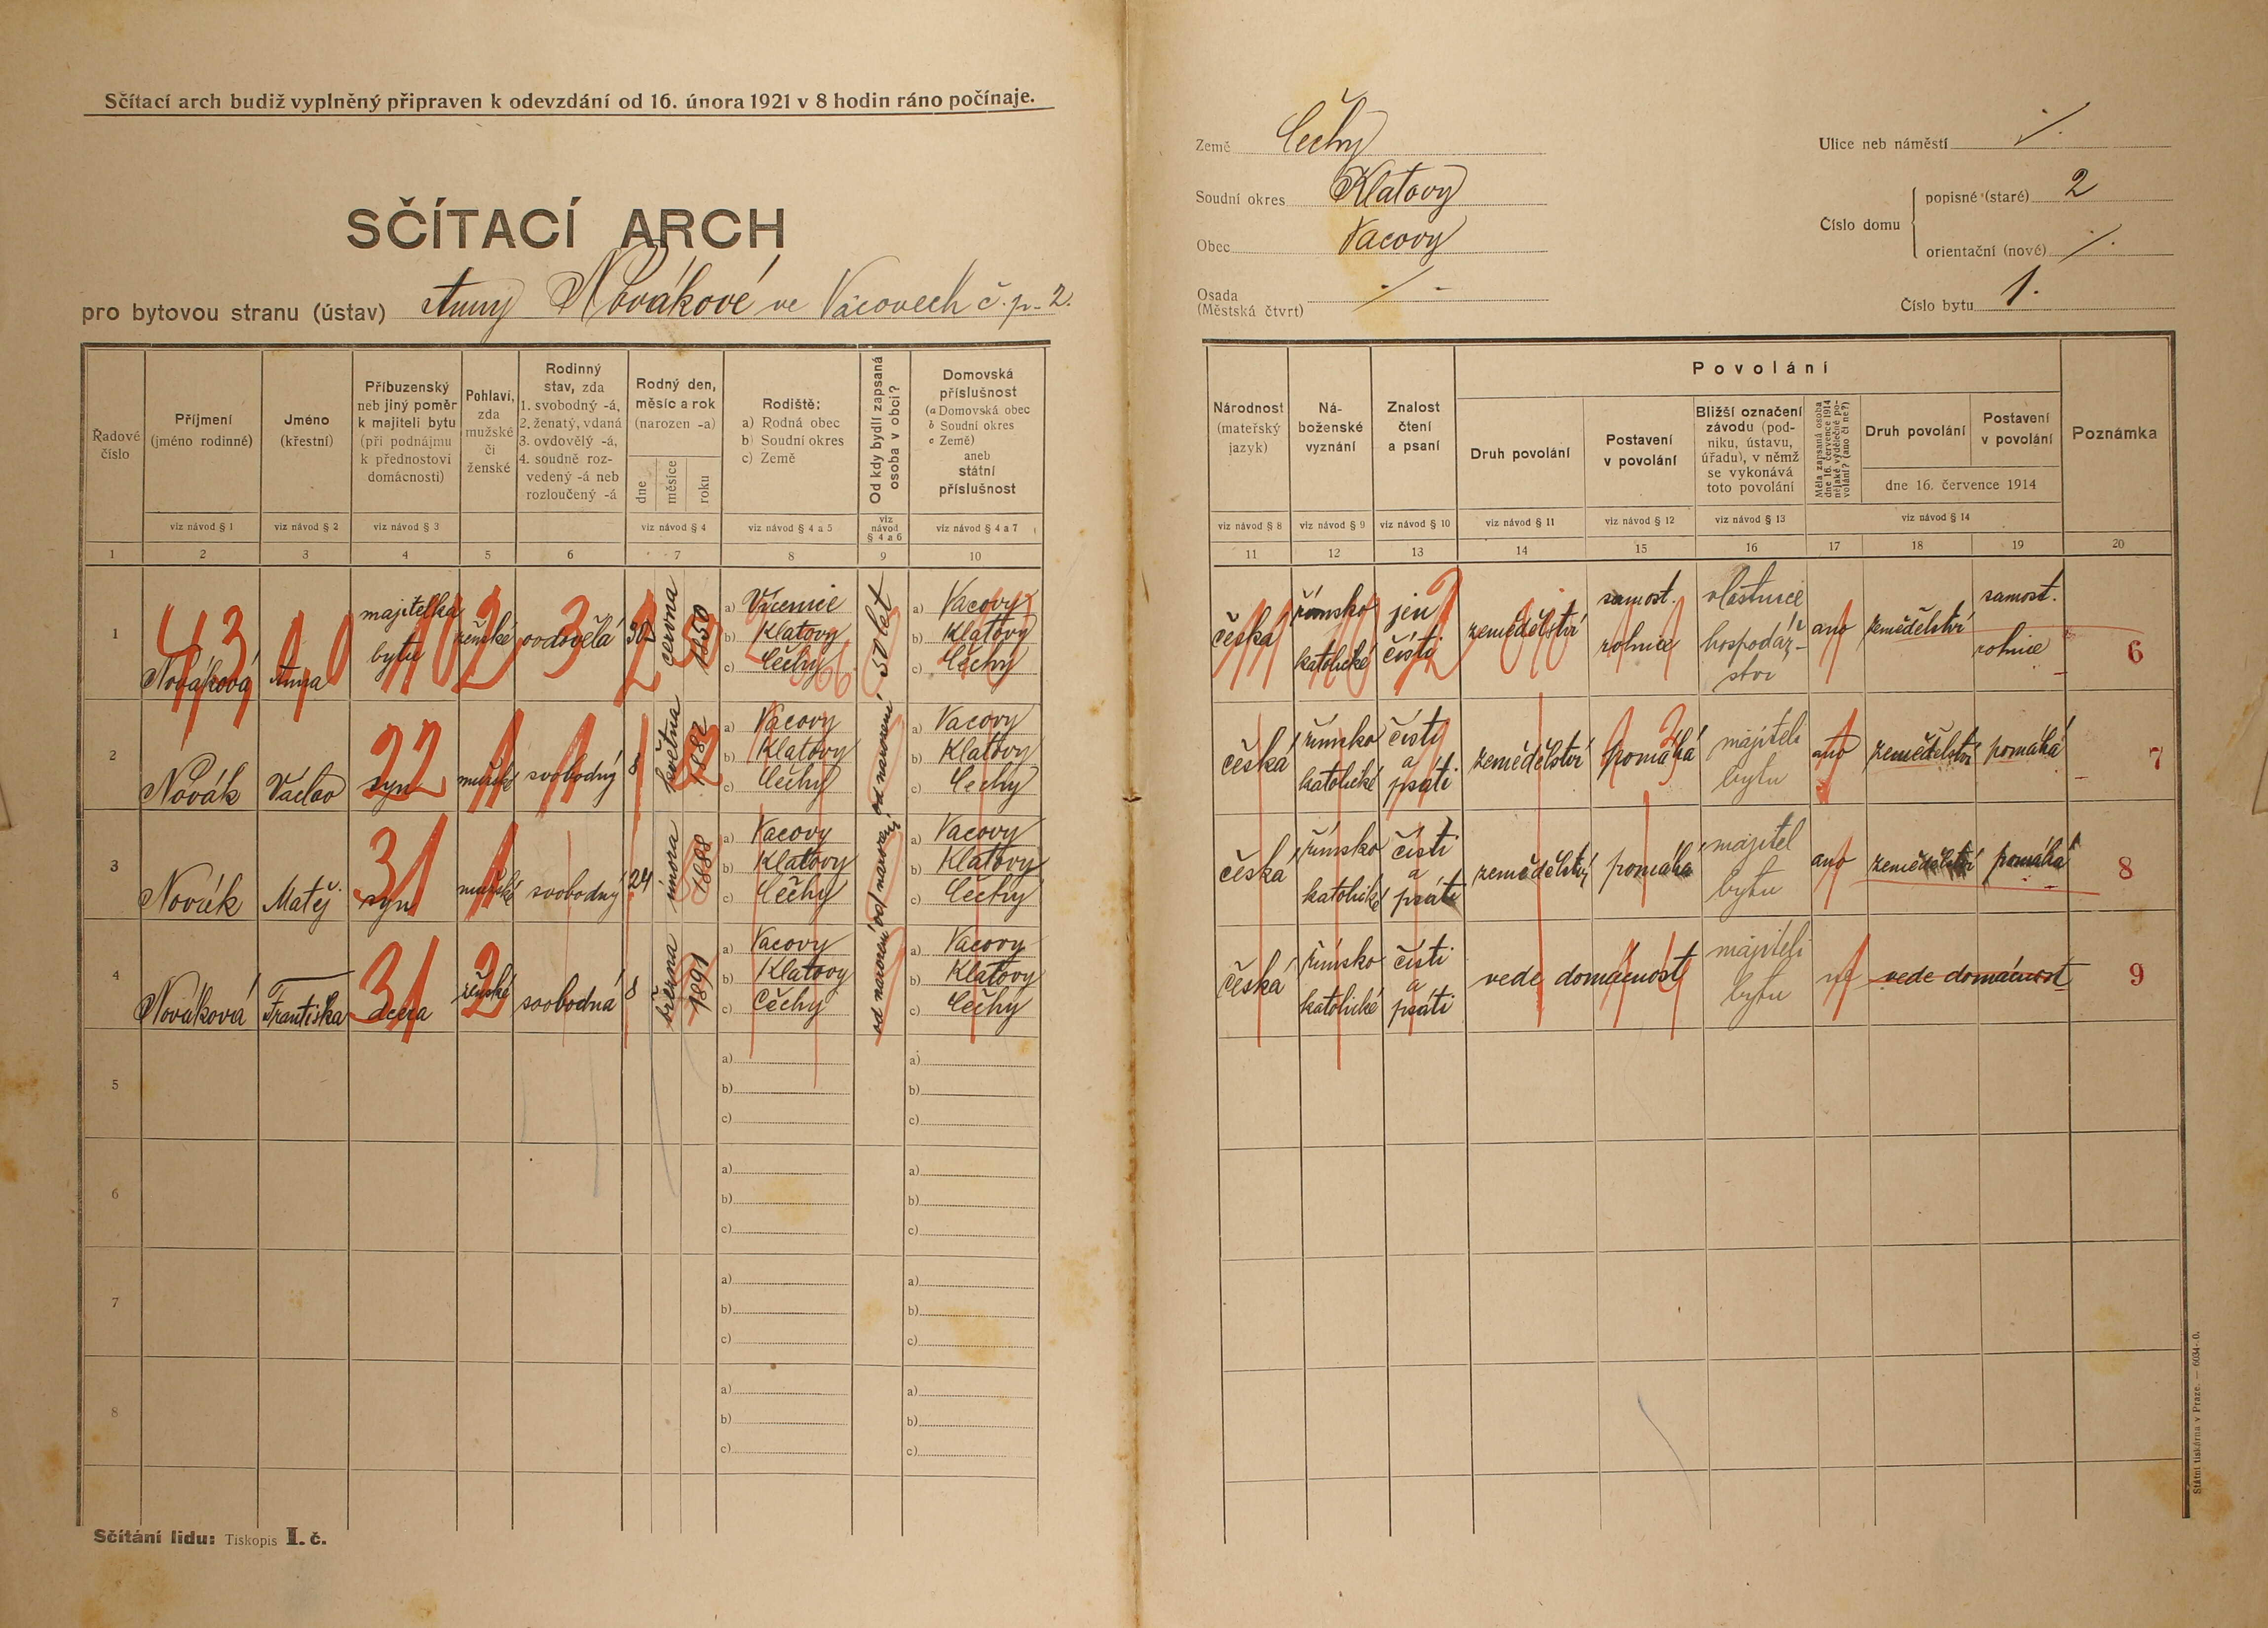 Sčítací arch budiž vyplněný připraven k odevzdání od 16. února 1921 v 8 hodin ráno počínaje.
SČÍTACÍ ARCH
pro bytovou stranu (ústav) Anny Novákové ve Vacovech č. p. 2.
Země Čechy
Soudní okres Klatovy
Obec Vacovy
Osada
(Městská čtvrt)
Ulice neb náměstí
Číslo domu
popisné (staré) 2
orientační (nové)
Číslo bytu 1.
Řadové číslo
Příjmení (jméno rodinné)
Jméno (křestní)
Příbuzenský neb jiný poměr k majiteli bytu (při podnájmu k přednostovi domácnosti)
Pohlaví, zda mužské či ženské
Rodinný stav, zda
1. svobodný -á,
2. ženatý, vdaná
3. ovdovělý -á,
4. soudně rozvedený -á neb rozloučený -á
Rodný den, měsíc a rok (narozen -a)
dne
měsíce
roku
Rodiště:
a) Rodná obec
b) Soudní okres
c) Země
Od kdy bydlí zapsaná osoba v obci?
Domovská příslušnost
(a Domovská obec
b Soudní okres
c Země)
aneb
státní
příslušnost
viz návod § 1
viz návod § 2
viz návod § 3
viz návod § 4
viz návod § 4 a 5
viz návod § 4 a 6
viz návod § 4 a 7
1 2 3 4 5 6 7 8 9 10
1 Nováková Anna majitelka bytu ženské ovdovělá 30 června 1850
a) Vícenice
b) Klatovy
c) Čechy
50 let
a) Vacovy
b) Klatovy
c) Čechy
2 Novák Václav syn mužské svobodný 8 května 1882
a) Vacovy
b) Klatovy
c) Čechy
od narození
a) Vacovy
b) Klatovy
c) Čechy
3 Novák Matěj syn mužské svobodný 24 února 1888
a) Vacovy
b) Klatovy
c) Čechy
od narození
a) Vacovy
b) Klatovy
c) Čechy
4 Nováková Františka dcera ženské svobodná 8 března 1891
a) Vacovy
b) Klatovy
c) Čechy
od narození
a) Vacovy
b) Klatovy
c) Čechy
5
a) a)
b) b)
c) c)
6
a) a)
b) b)
c) c)
7
a) a)
b) b)
c) c)
8
a) a)
b) b)
c) c)
Sčítání lidu: Tiskopis I. č.
Národnost (mateřský jazyk)
Náboženské vyznání
Znalost čtení a psaní
Povolání
Druh povolání
Postavení v povolání
Bližší označení závodu (podniku, ústavu, úřadu), v němž se vykonává toto povolání
Měla zapsaná osoba dne 16. července 1914 nějaké výdělečné povolání? (ano či ne?)
Druh povolání
Postavení v povolání
dne 16. července 1914
Poznámka
viz návod § 8
viz návod § 9
viz návod § 10
viz návod § 11
viz návod § 12
viz návod § 13
viz návod § 14
11 12 13 14 15 16 17 18 19 20
česká římsko katolické jen čísti zemědělství samost. rolnice vlastnice hospodářství ano zemědělství samost. rolnice 6
česká římsko katolické čísti a psáti zemědělství pomáhá majiteli bytu ano zemědělství pomáhá 7
česká římsko katolické čísti a psáti zemědělství pomáhá majitel bytu ano zemědělství pomáhá 8
česká římsko katolické čísti a psáti vede domácnost majiteli bytu ne vede domácnost 9
Státní tiskárna v Praze. — 6034-0.